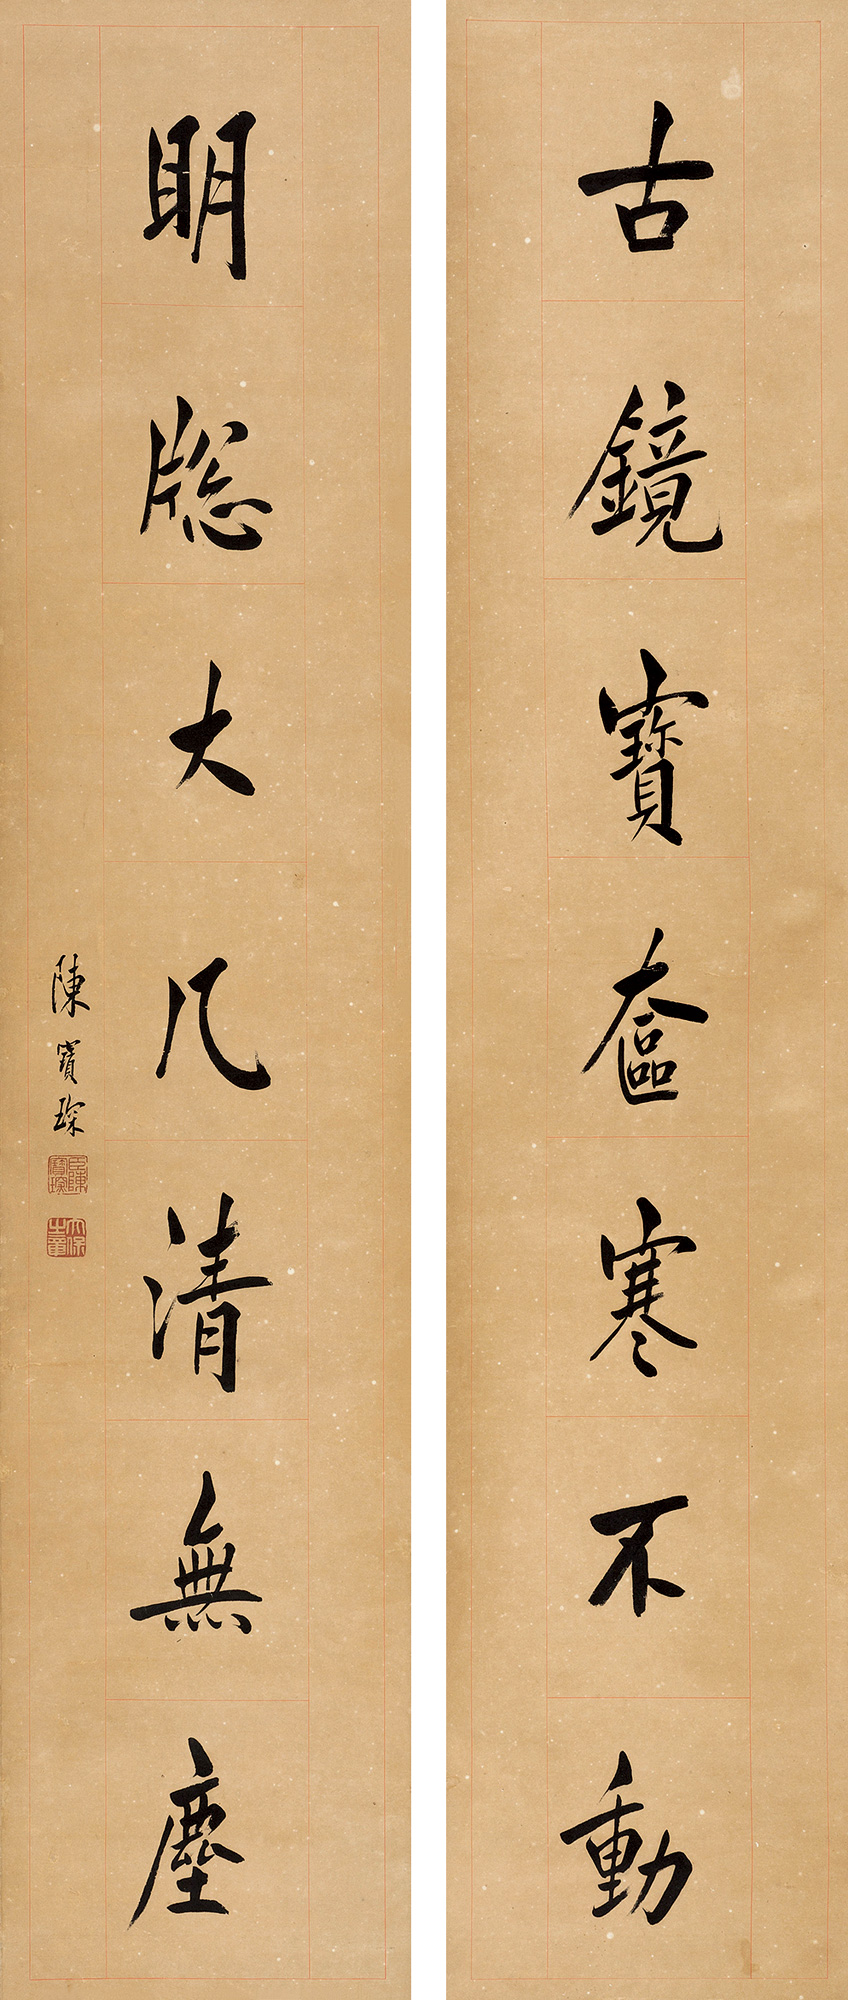 古鏡寶奩寒不動
明牕大几清無塵
陳寶琛
臣陳寶琛
太保世章